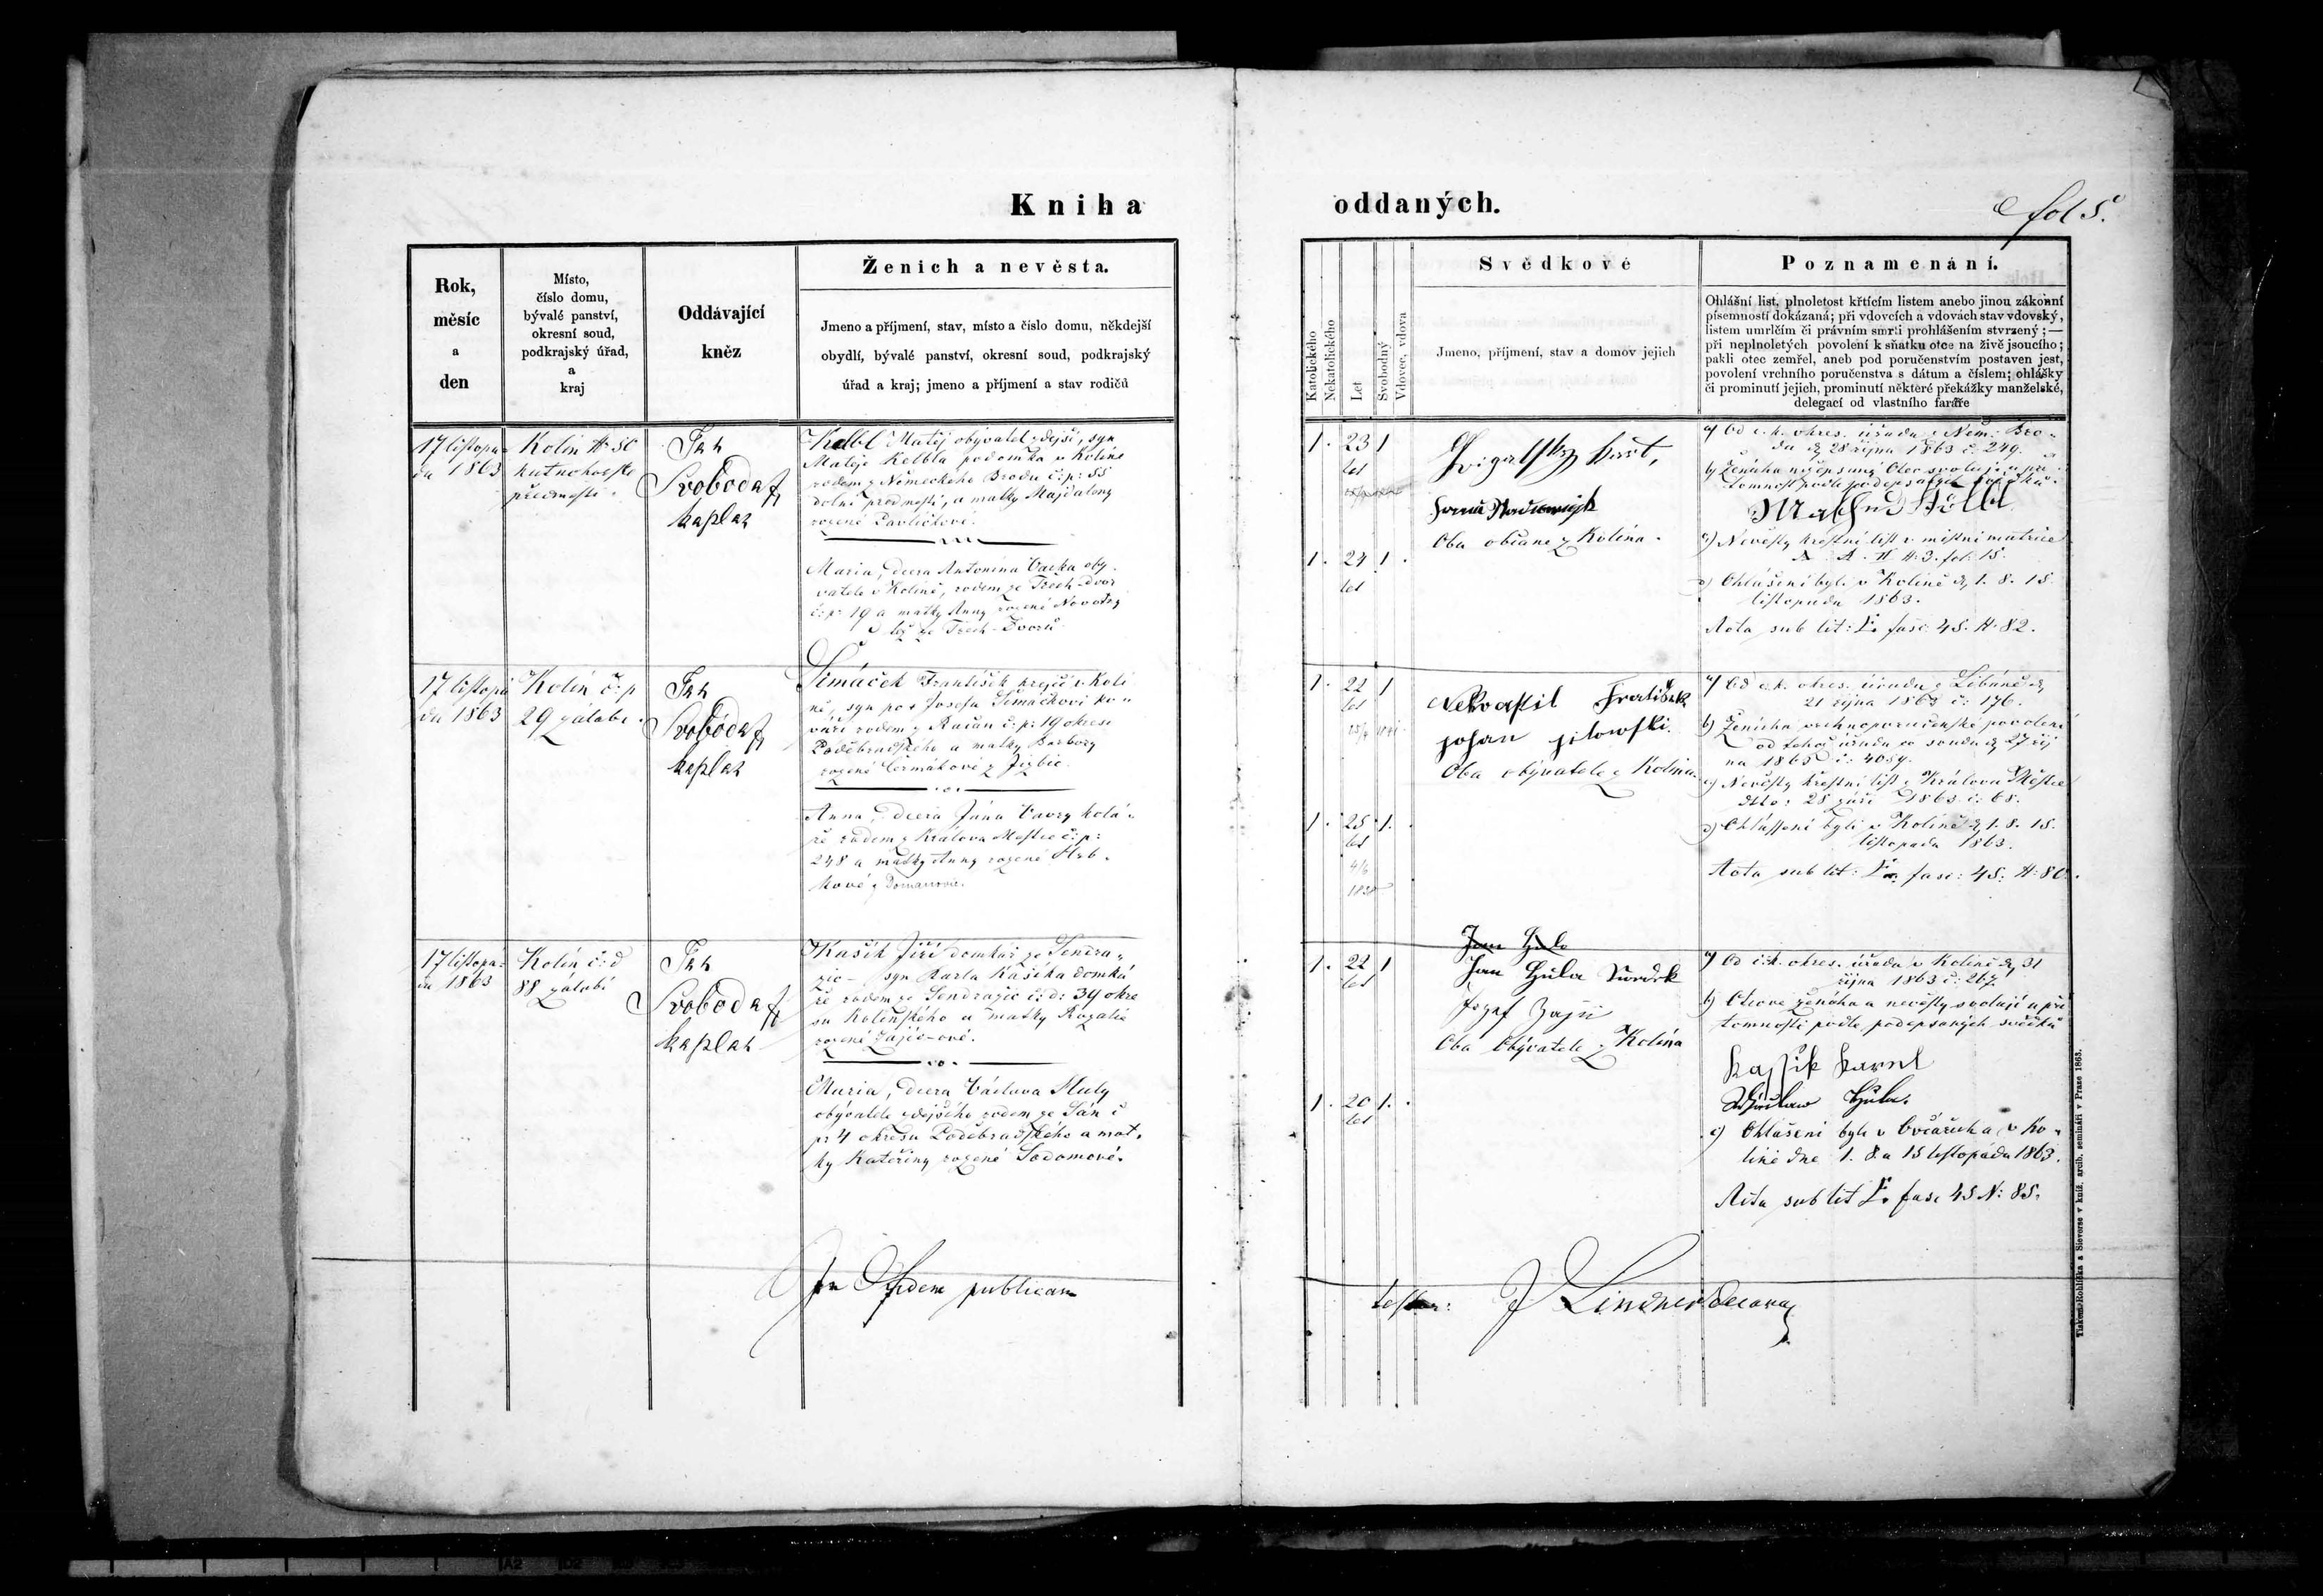 Kniha
oddaných.
fol 5.
Rok,
měsíc
a
den
Místo,
číslo domu,
bývalé panství,
okresní soud,
podkrajský úřad,
a
kraj
Oddávající
kněz
Ženich a nevěsta.
Jmeno a příjmení, stav, místo a číslo domu, někdejší
obydlí, bývalé panství, okresní soud, podkrajský
úřad a kraj; jmeno a příjmení a stav rodičů
Katolického
Nekatolického
Let
Svobodný
Vdovec, vdova
Svědkové
Jmeno, příjmení, stav a domov jejich
Poznamenání.
Ohlášní list, plnoletost křtícím listem anebo jinou zákonní
písemností dokázaná; při vdovcích a vdovách stav vdovský,
listem umrlčím či právním smrti prohlášením stvrzený; —
při neplnoletých povolení k sňatku otce na živě jsoucího;
pakli otec zemřel, aneb pod poručenstvím postaven jest,
povolení vrchního poručenstva s dátum a číslem; ohlášky
či prominutí jejich, prominutí některé překážky manželské,
delegací od vlastního faráře
17 listopa-
da 1863
Kolín
kutnohorské
předmestí
Jan
Svoboda
kaplan
Kelbl Matěj obývatel zdejší, syn
Matěje Kelbla podomka v Kolíně
rodem z Německého Brodu č: p: 55
dolní předmestí, a matky Majdaleny
rozené Pavlíčkové.
Maria, dcera Antonína Vacka oby-
vatele v Kolíně, rodem ze Třech Dvor
č: p: 19 a matky Anny rozené Novotny
též ze Třech-Dvorů
1. 23 1
let
1. 24 1.
let
Oba občane z Kolína.
a) Od c. k. okres. úřadu z Něm. Bro-
du 28 října 1863 č: 249.
c) Nevěsty křestní list v místní matrice
fol: 15.
d) Ohlášeni byli v Kolíně d. 1. 8. 15.
listopadu 1863.
Acta sub lit: fasc: 45. N: 82.
17 listopa
da 1863
Kolín č: p
29 zálabí.
Jan
Svoboda
kaplan
Šimáček František krejčí v Kolí
ně, syn po + Josefu Šimáčkovi ko-
váři rodem z Račan č: p: 19 okresu
Poděbradského a matky Barbory
rozené Čermákové z Jizbic.
Anna, dcera Jána Vavry kolá-
ře rodem z Králova Mestce č: p:
248 a matky Anny rozené Hrb-
kové z Domanovic.
1. 22 1
let
1. 25 1.
let
Nekvasil František
Johan Jilowski.
Oba obývatele z Kolína.
a) Od c. k. okres. úřadu z Libáně d.
21 října 1863 č: 176.
b) Ženicha vrchnoporučenské povolení
od tohož úřadu co soudu d. 27 říj
na 1863 č: 4059.
c) Nevěsty křestní list z Králova Městce
dtto: 28 září 1863 č: 68.
d) Ohlášseni byli v Kolíně d. 1. 8. 15.
listopadu 1863.
Acta sub lit: fasc: 45. N: 80.
17 listopa-
da 1863
Kolín č: d
88 zálabí
Jan
Svoboda
kaplan
Kašík Jiří domkář ze Sendra-
žic – syn Karla Kašíka domká
ře rodem ze Sendražic č: d: 39 okre
su Kolínského a matky Rozalie
rozené Zájícové.
Maria, dcera Václava Huly
obývatele zdejšího rodem ze Sán č
p: 4 okresu Poděbradského a mat-
ky Kateřiny rozené Sodomové.
1. 22 1
let
1. 20 1.
let
Jan Hula
Jan Hula Swedek
Jozef Zajíc
Oba Obývatele z Kolína
a) Od c. k. okres. úřadu v Kolíně d. 31
října 1863 č: 267.
b) Otcové ženicha a nevěsty svolují u pří
tomnosti podle podepsaných svědků
Kassik Karel
Hula.
c) Ohlášeni byli v Ovčárech a v Ko-
líně dne 1. 8. a 15 listopadu 1863.
Acta sub lit fasc 45 N: 85.
In fidem publicam
J Lindner
Tiskem Rohlíčka a Sieverse v kníž. arcib. semináři v Praze 1863.